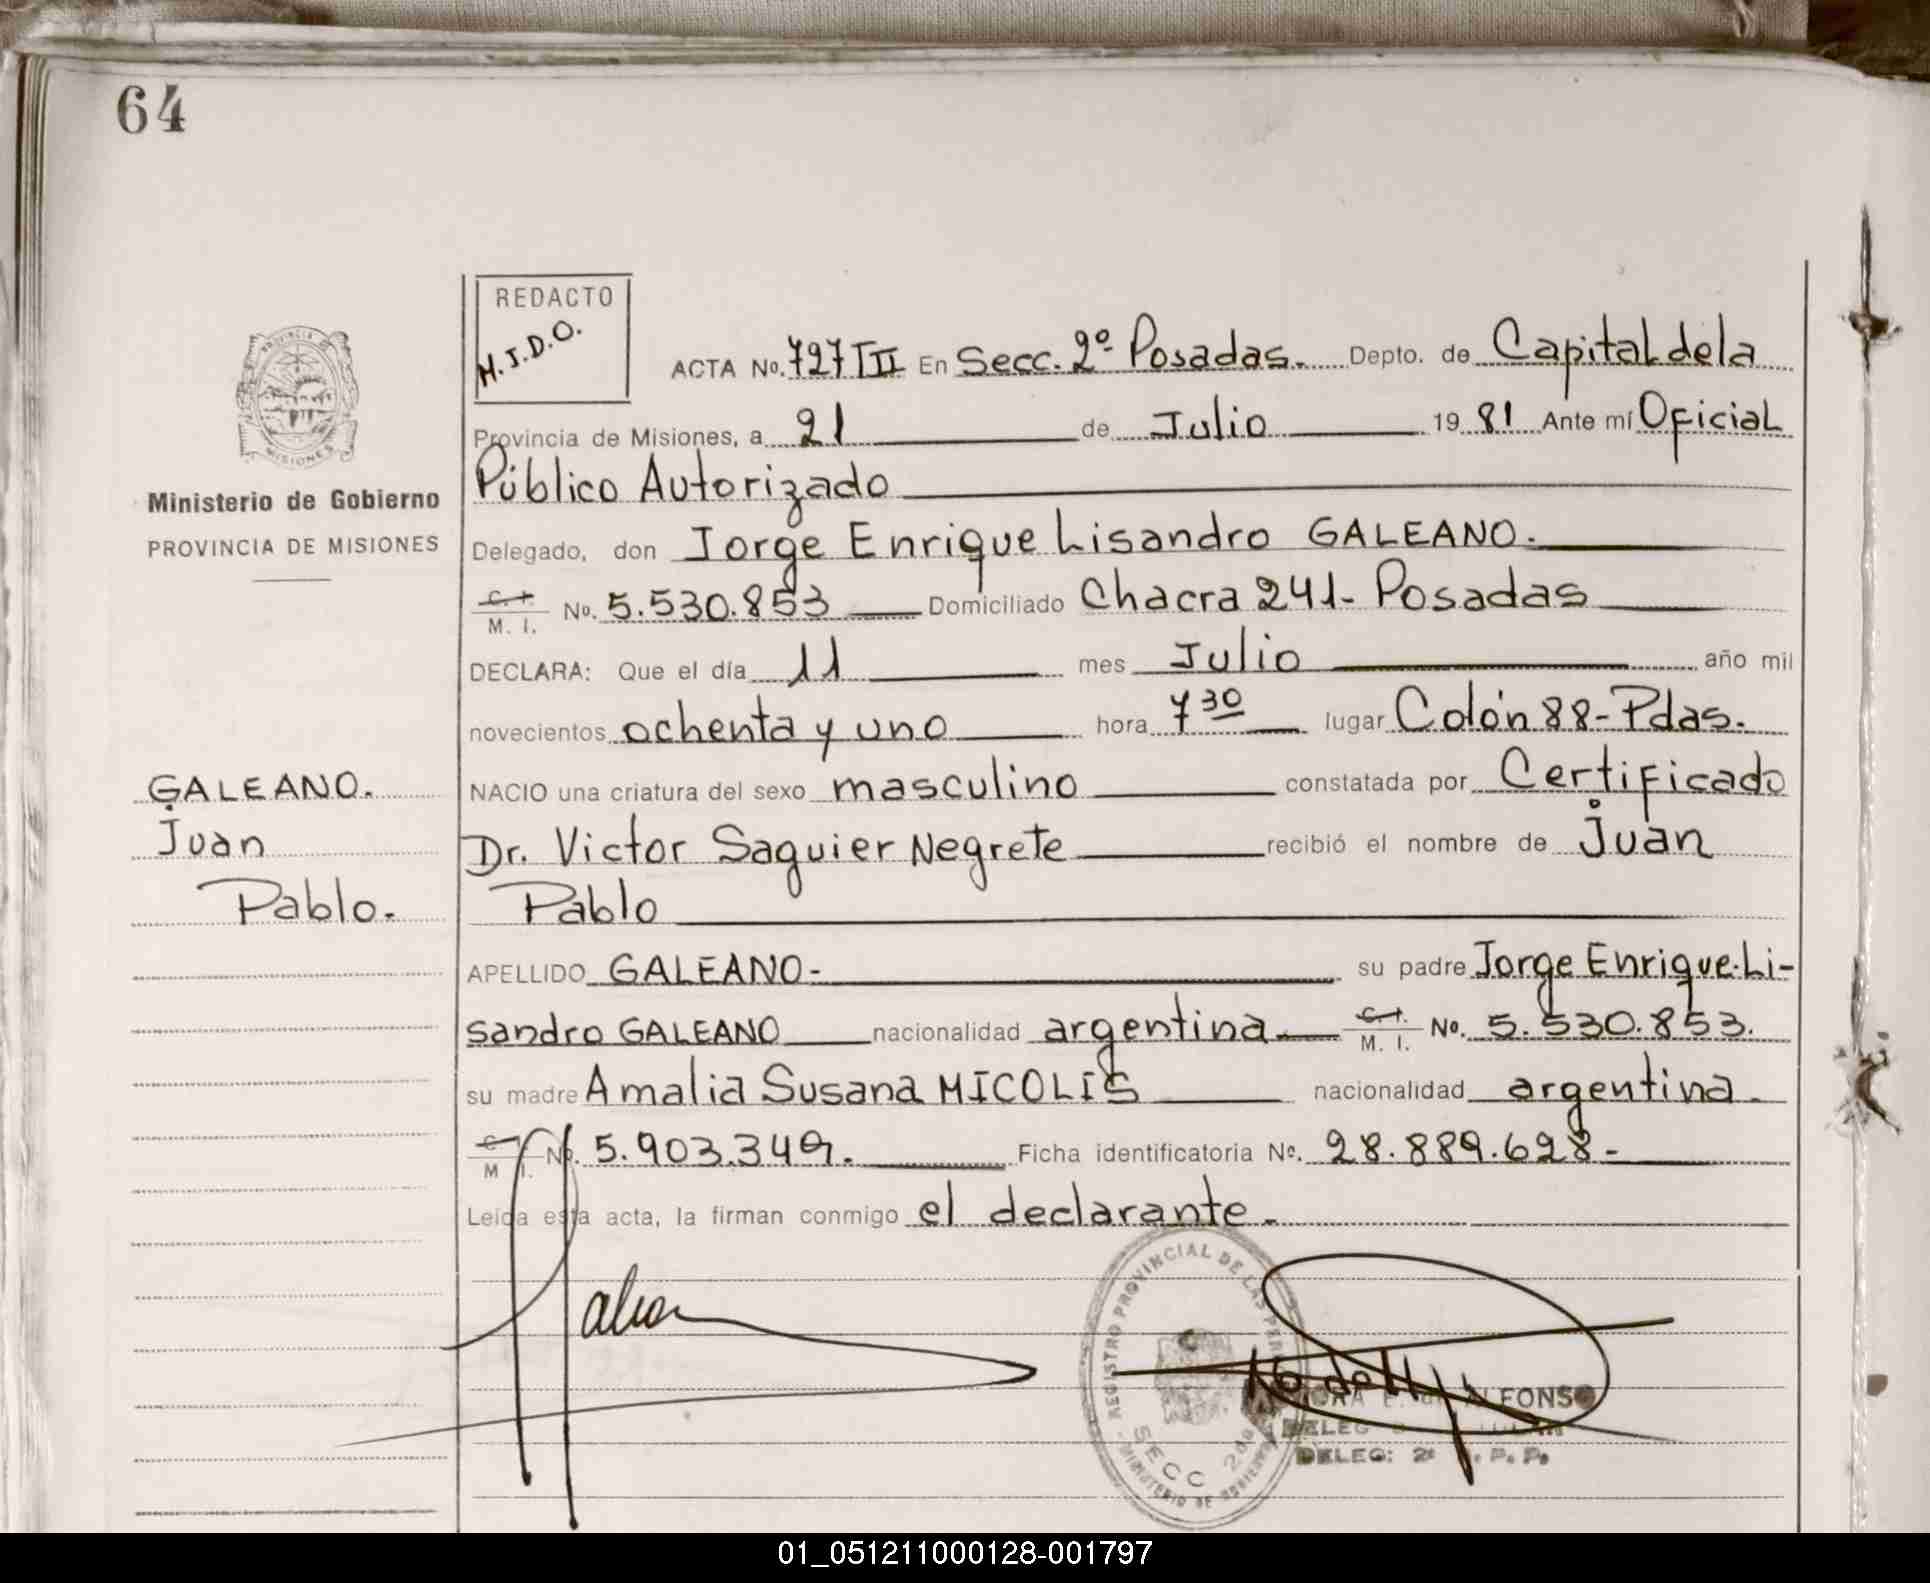 64
REDACTO
H.J.D.O.
ACTA No. 727 III En Secc. 2º Posadas. Depto. de Capital de la
Provincia de Misiones, a 21 de Julio 19 81 Ante mí Oficial
Público Autorizado
Ministerio de Gobierno
PROVINCIA DE MISIONES
Delegado, don Jorge Enrique Lisandro GALEANO.
C. I. M. I. No. 5.530.853 Domiciliado Chacra 241- Posadas
DECLARA: Que el día 11 mes Julio año mil
novecientos ochenta y uno hora 7 30 lugar Colón 88-Pdas.
GALEANO.
Juan
Pablo.
NACIO una criatura del sexo masculino constatada por Certificado
Dr. Victor Saguier Negrete recibió el nombre de Juan
Pablo
APELLIDO GALEANO- su padre Jorge Enrique Li-
sandro GALEANO nacionalidad argentina C. I. M. I. No. 5.530.853.
su madre Amalia Susana MICOLIS nacionalidad argentina.
C M I. No. 5.903.349. Ficha identificatoria No. 28.889.628-
Leída esta acta, la firman conmigo el declarante.
REGISTRO PROVINCIAL DE LAS
SECC 2da
MINISTERIO DE
DELEG: 2 P. P.
01_051211000128-001797